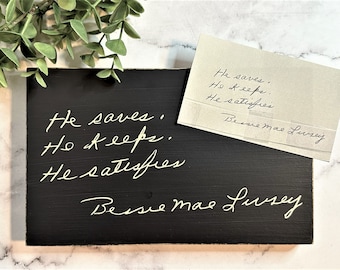 He saves.
He keeps.
He satisfies
Bessie Mae Livsey
He saves.
He keeps.
He satisfies
Bessie Mae Livsey